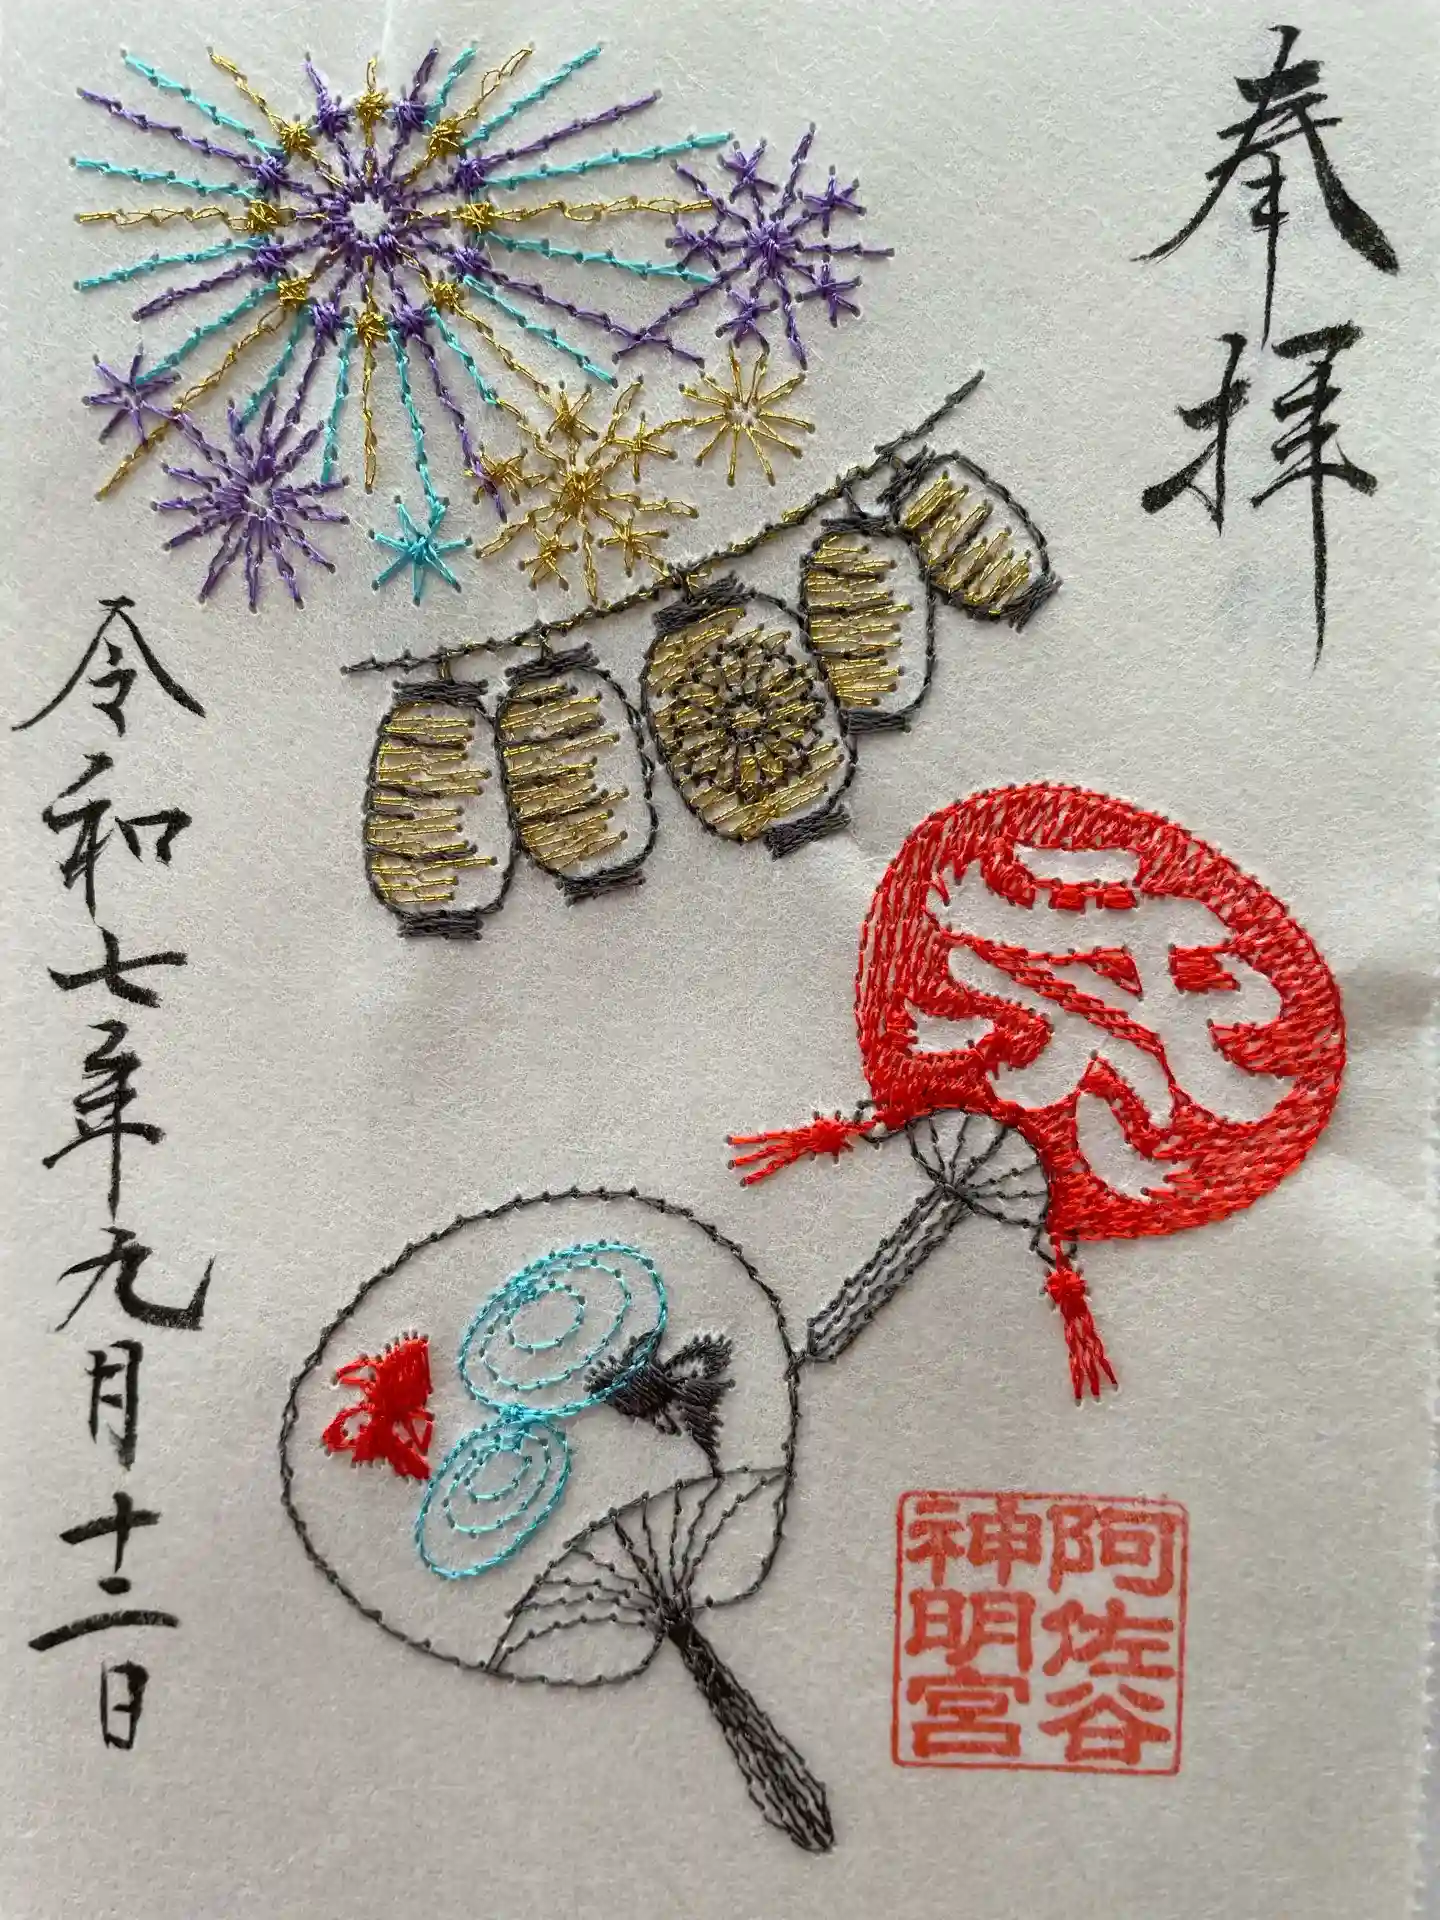 奉拝
祭
阿佐谷
神明宮
令和七年九月十二日